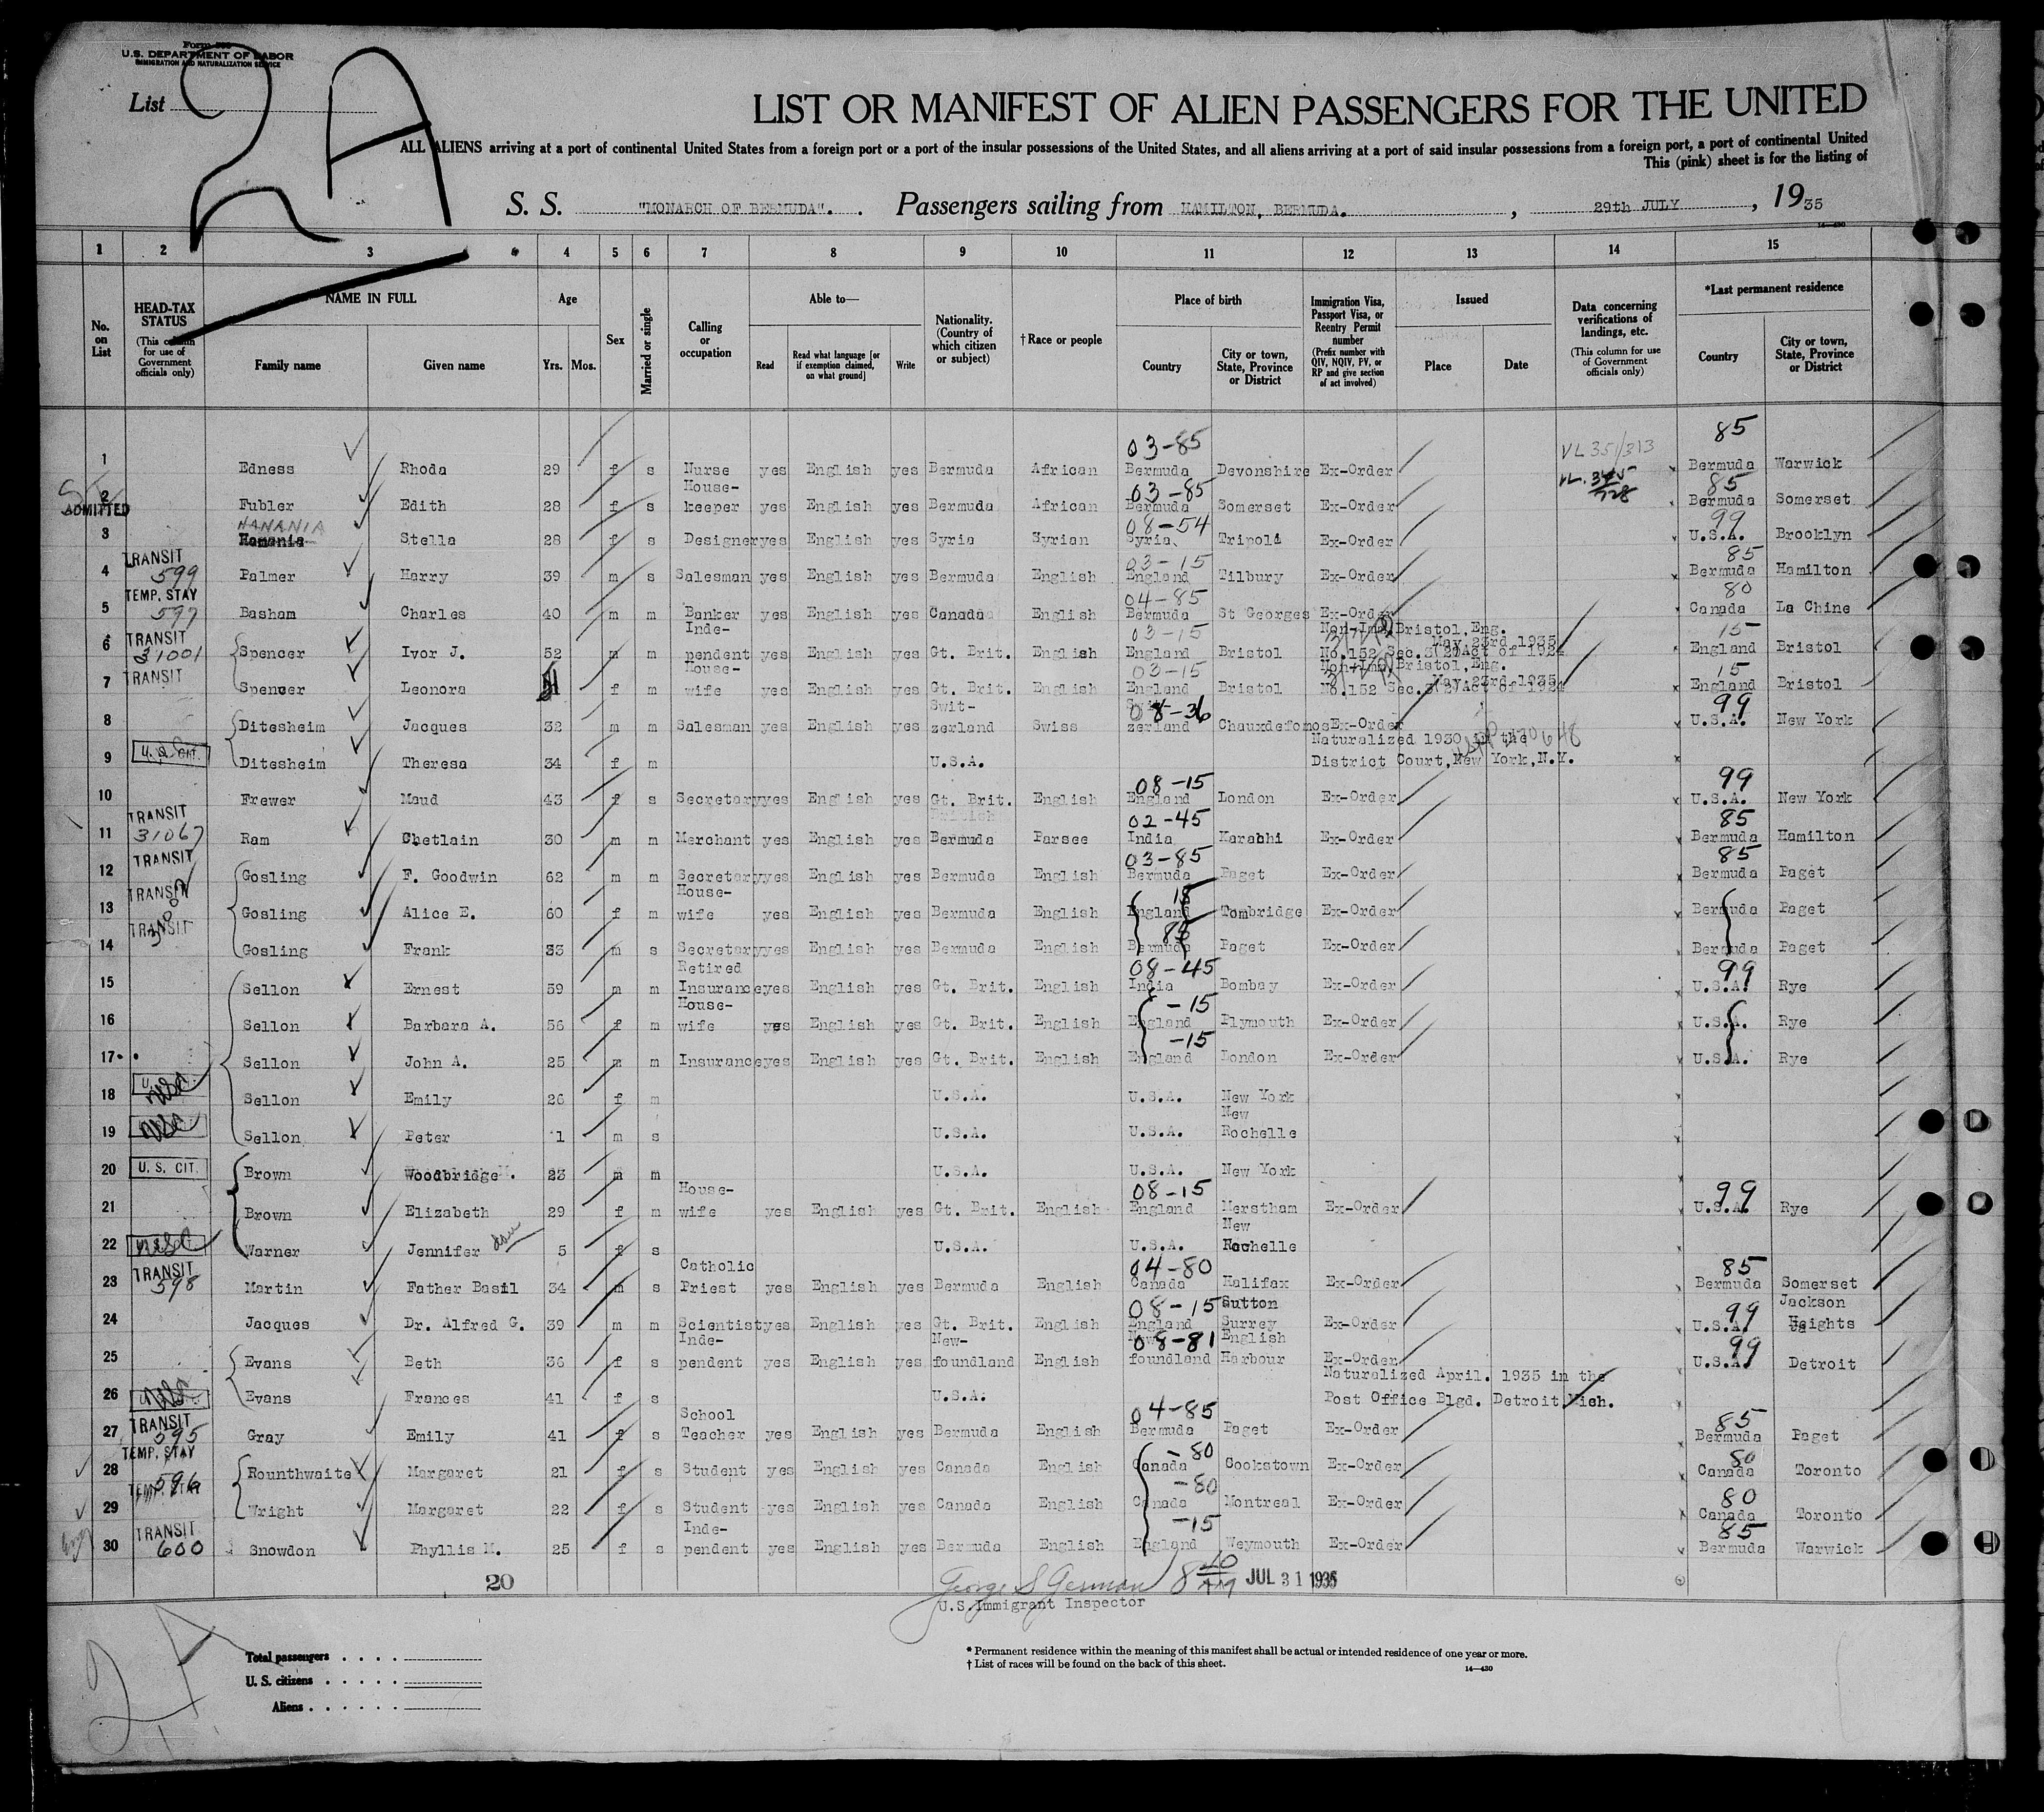 Form 500
U.S. DEPARTMENT OF LABOR
IMMIGRATION AND NATURALIZATION SERVICE
List 2A
LIST OR MANIFEST OF ALIEN PASSENGERS FOR THE UNITED
ALL ALIENS arriving at a port of continental United States from a foreign port or a port of the insular possessions of the United States, and all aliens arriving at a port of said insular possessions from a foreign port, a port of continental United
This (pink) sheet is for the listing of
S. S. "MONARCH OF BERMUDA". Passengers sailing from HAMILTON, BERMUDA. , 29th JULY , 1935
14—430
1 2 3 4 5 6 7 8 9 10 11 12 13 14 15
No. on List
HEAD-TAX STATUS (This column for use of Government officials only)
NAME IN FULL Family name Given name
Age Yrs. Mos.
Sex
Married or single
Calling or occupation
Able to— Read Read what language [or if exemption claimed, on what ground] Write
Nationality. (Country of which citizen or subject)
†Race or people
Place of birth Country City or town, State, Province or District
Immigration Visa, Passport Visa, or Reentry Permit number (Prefix number with QIV, NQIV, PV, or RP and give section of act involved)
Issued Place Date
Data concerning verifications of landings, etc. (This column for use of Government officials only)
*Last permanent residence Country City or town, State, Province or District
03-85 VL 351/313 85
1 Edness Rhoda 29 f s Nurse yes English yes Bermuda African Bermuda Devonshire Ex-Order Bermuda Warwick
House- 03-85 VL. 345/728 85
ADMITTED 2 Fubler Edith 28 f s keeper yes English yes Bermuda African Bermuda Somerset Ex-Order Bermuda Somerset
HANANIA 08-54 99
3 Hanania Stella 28 f s Designer yes English yes Syria Syrian Syria Tripoli Ex-Order U.S.A. Brooklyn
TRANSIT 03-15 85
4 599 Palmer Harry 39 m s Salesman yes English yes Bermuda English England Tilbury Ex-Order Bermuda Hamilton
TEMP. STAY 04-85 80
5 597 Basham Charles 40 m m Banker yes English yes Canada English Bermuda St Georges Ex-Order Canada La Chine
TRANSIT Inde- 03-15 Non-Imm Bristol, Eng. May 23rd 1935 15
6 31001 Spencer Ivor J. 52 m m pendent yes English yes Gt. Brit. English England Bristol No.152 Sec.3(2)Act of 1924 England Bristol
TRANSIT House- 03-15 Non-Imm Bristol, Eng. May 23rd 1935 15
7 Spencer Leonora 51 f m wife yes English yes Gt. Brit. English England Bristol No.152 Sec.3(2)Act of 1924 England Bristol
Swit- Swit- 08-36 99
8 Ditesheim Jacques 32 m m Salesman yes English yes zerland Swiss zerland Chauxdefonos Ex-Order U.S.A. New York
U.S. CIT. Naturalized 1930 in the
9 Ditesheim Theresa 34 f m U.S.A. District Court, New York, N.Y.
08-15 99
10 Frewer Maud 43 f s Secretary yes English yes Gt. Brit. English England London Ex-Order U.S.A. New York
TRANSIT British 02-45 85
11 31067 Ram Chetlain 30 m m Merchant yes English yes Bermuda Parsee India Karachi Ex-Order Bermuda Hamilton
TRANSIT 03-85 85
12 Gosling F. Goodwin 62 m m Secretary yes English yes Bermuda English Bermuda Paget Ex-Order Bermuda Paget
TRANSIT House- 15
13 Gosling Alice E. 60 f m wife yes English yes Bermuda English England Tombridge Ex-Order Bermuda Paget
TRANSIT 85
14 Gosling Frank 33 m s Secretary yes English yes Bermuda English Bermuda Paget Ex-Order Bermuda Paget
Retired 08-45 99
15 Sellon Ernest 59 m m Insurance yes English yes Gt. Brit. English India Bombay Ex-Order U.S.A. Rye
House- -15
16 Sellon Barbara A. 56 f m wife yes English yes Gt. Brit. English England Plymouth Ex-Order U.S.A. Rye
-15
17 Sellon John A. 25 m m Insurance yes English yes Gt. Brit. English England London Ex-Order U.S.A. Rye
18 USC Sellon Emily 26 f m U.S.A. U.S.A. New York
New
19 USC Sellon Peter 1 m s U.S.A. U.S.A. Rochelle
20 U. S. CIT. Brown Woodbridge M. 23 m m U.S.A. U.S.A. New York
House- 08-15 99
21 Brown Elizabeth 29 f m wife yes English yes Gt. Brit. English England Merstham Ex-Order U.S.A. Rye
New
22 USC Warner Jennifer 5 f s U.S.A. U.S.A. Rochelle
TRANSIT Catholic 04-80 85
23 598 Martin Father Basil 34 m s Priest yes English yes Bermuda English Canada Halifax Ex-Order Bermuda Somerset
08-15 Sutton 99 Jackson
24 Jacques Dr. Alfred G. 39 m m Scientist yes English yes Gt. Brit. English England Surrey Ex-Order U.S.A. Heights
Inde- New- New- 08-81 English 99
25 Evans Beth 36 f s pendent yes English yes foundland English foundland Harbour Ex-Order U.S.A. Detroit
Naturalized April. 1935 in the
26 USC Evans Frances 41 f s U.S.A. Post Office Blgd. Detroit, Mich.
TRANSIT School 04-85 85
27 595 Gray Emily 41 f s Teacher yes English yes Bermuda English Bermuda Paget Ex-Order Bermuda Paget
TEMP. STAY -80 80
28 596 Rounthwaite Margaret 21 f s Student yes English yes Canada English Canada Cookstown Ex-Order Canada Toronto
TEMP. STAY -80 80
29 Wright Margaret 22 f s Student yes English yes Canada English Canada Montreal Ex-Order Canada Toronto
TRANSIT Inde- -15 85
30 600 Snowdon Phyllis M. 25 f s pendent yes English yes Bermuda English England Weymouth Ex-Order Bermuda Warwick
20 George S German 8 10 AM JUL 31 1935
U.S. Immigrant Inspector
2A
Total passengers . . . .
U. S. citizens . . . . .
Aliens . . . . . .
* Permanent residence within the meaning of this manifest shall be actual or intended residence of one year or more.
† List of races will be found on the back of this sheet.
14—430